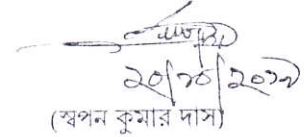 ২০/১০/২০১৯
(স্বপন কুমার দাস)